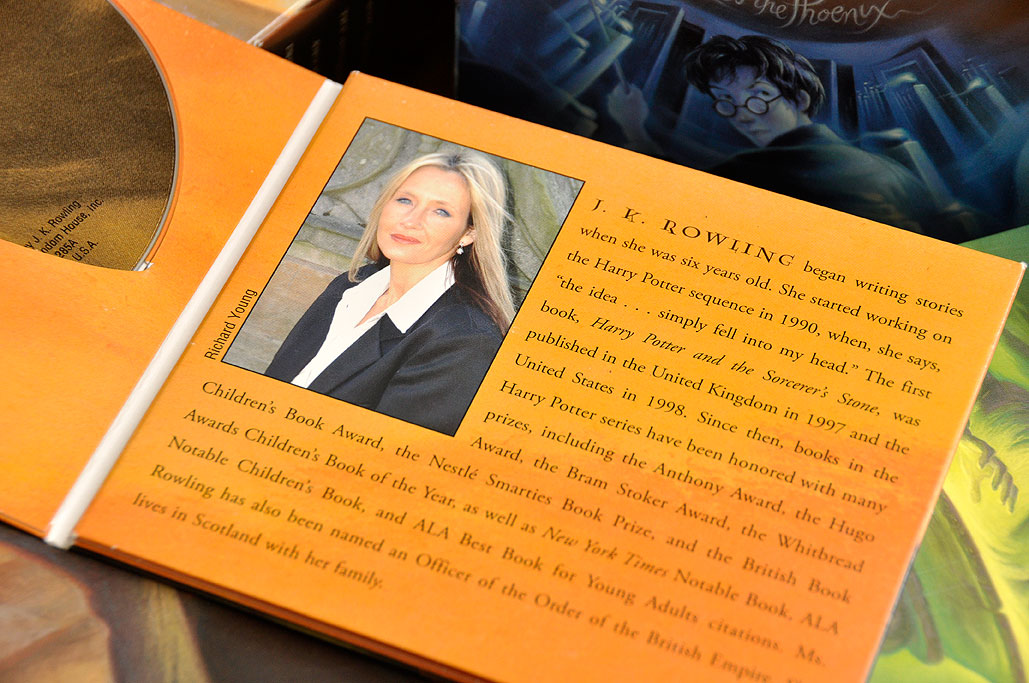 the Phoenix
y J. K. Rowling
ndom House, Inc.
285A
U.S.A.
Richard Young
J. K. ROWLING began writing stories
when she was six years old. She started working on
the Harry Potter sequence in 1990, when, she says,
“the idea . . . simply fell into my head.” The first
book, Harry Potter and the Sorcerer’s Stone, was
published in the United Kingdom in 1997 and the
United States in 1998. Since then, books in the
Harry Potter series have been honored with many
prizes, including the Anthony Award, the Hugo
Award, the Bram Stoker Award, the Whitbread
Children’s Book Award, the Nestlé Smarties Book Prize, and the British Book
Awards Children’s Book of the Year, as well as New York Times Notable Book, ALA
Notable Children’s Book, and ALA Best Book for Young Adults citations. Ms.
Rowling has also been named an Officer of the Order of the British Empire.
lives in Scotland with her family.